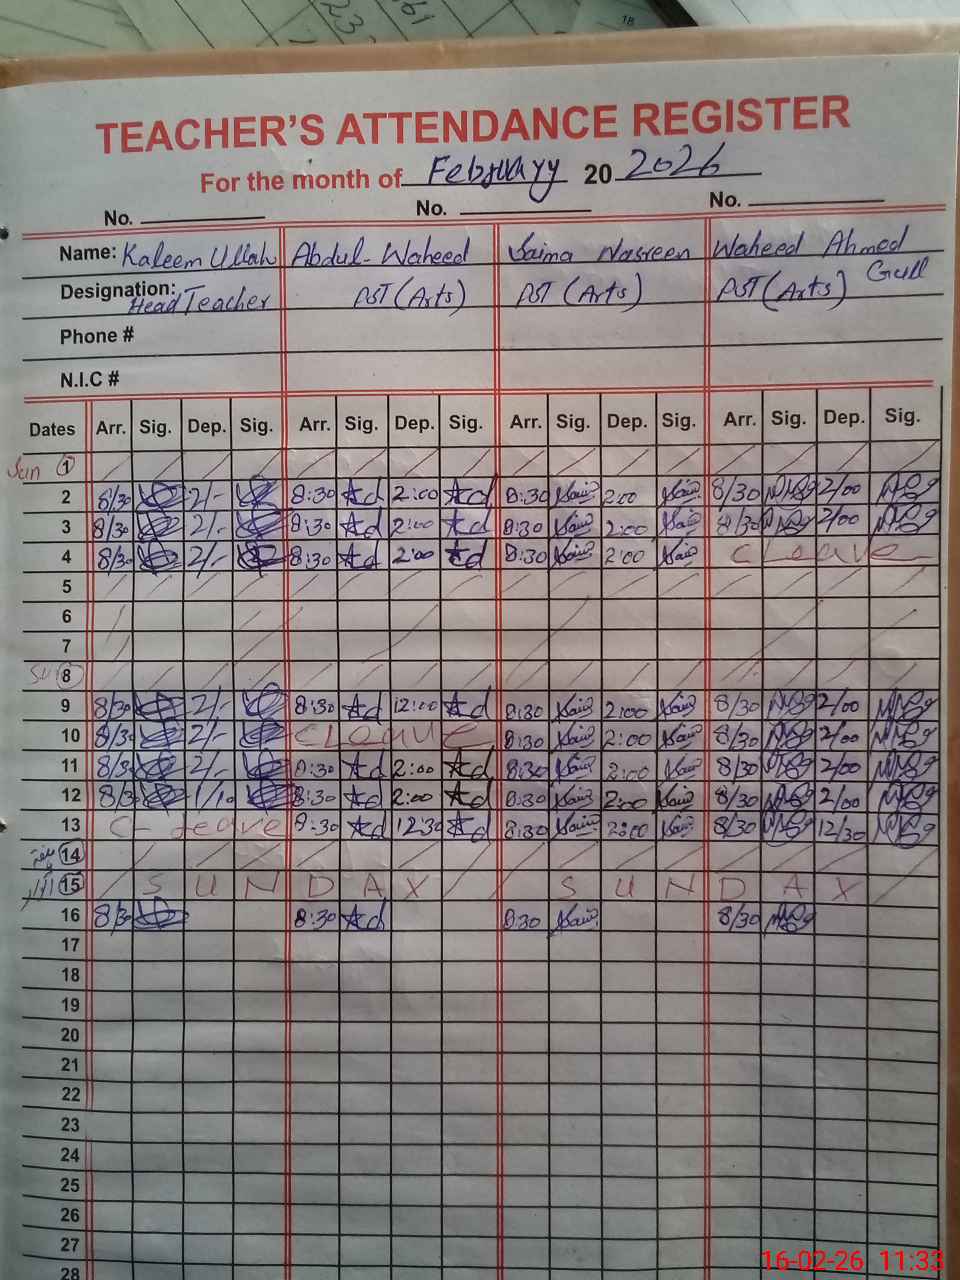 161
23
18
TEACHER'S ATTENDANCE REGISTER
For the month of February 20 2026
No. No. No.
Name: Kaleem Ullah Abdul-Waheed Saima Nasreen Waheed Ahmed Gull
Designation: Head Teacher PST (Arts) PST (Arts) PST (Arts)
Phone #
N.I.C #
Dates Arr. Sig. Dep. Sig. Arr. Sig. Dep. Sig. Arr. Sig. Dep. Sig. Arr. Sig. Dep. Sig.
Sun 1
2 8/30 2/- 8:30 2:00 8:30 2:00 8/30 2/00
3 8/30 2/- 8:30 2:00 8:30 2:00 8/30 2/00
4 8/30 2/- 8:30 2:00 8:30 2:00 C Leave
5
6
7
Sun 8
9 8/30 2/- 8:30 12:00 8:30 2:00 8/30 2/00
10 8/30 2/- C Leave 8:30 2:00 8/30 2/00
11 8/30 2/- 8:30 2:00 8:30 2:00 8/30 2/00
12 8/30 1/10 8:30 2:00 8:30 2:00 8/30 2/00
13 C-Leave 8:30 12:30 8:30 2:00 8/30 12/30
14
15 S U N D A Y S U N D A Y
16 8/30 8:30 8:30 8/30
17
18
19
20
21
22
23
24
25
26
27
28
16-02-26 11:33